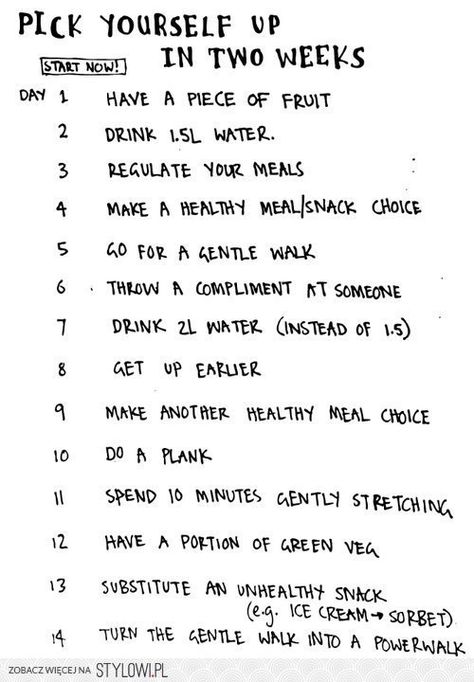 PICK YOURSELF UP
IN TWO WEEKS
START NOW!
DAY 1 HAVE A PIECE OF FRUIT
2 DRINK 1.5L WATER.
3 REGULATE YOUR MEALS
4 MAKE A HEALTHY MEAL/SNACK CHOICE
5 GO FOR A GENTLE WALK
6 THROW A COMPLIMENT AT SOMEONE
7 DRINK 2L WATER (INSTEAD OF 1.5)
8 GET UP EARLIER
9 MAKE ANOTHER HEALTHY MEAL CHOICE
10 DO A PLANK
11 SPEND 10 MINUTES GENTLY STRETCHING
12 HAVE A PORTION OF GREEN VEG
13 SUBSTITUTE AN UNHEALTHY SNACK
(e.g. ICE CREAM → SORBET)
14 TURN THE GENTLE WALK INTO A POWERWALK
ZOBACZ WIĘCEJ NA STYLOWI.PL